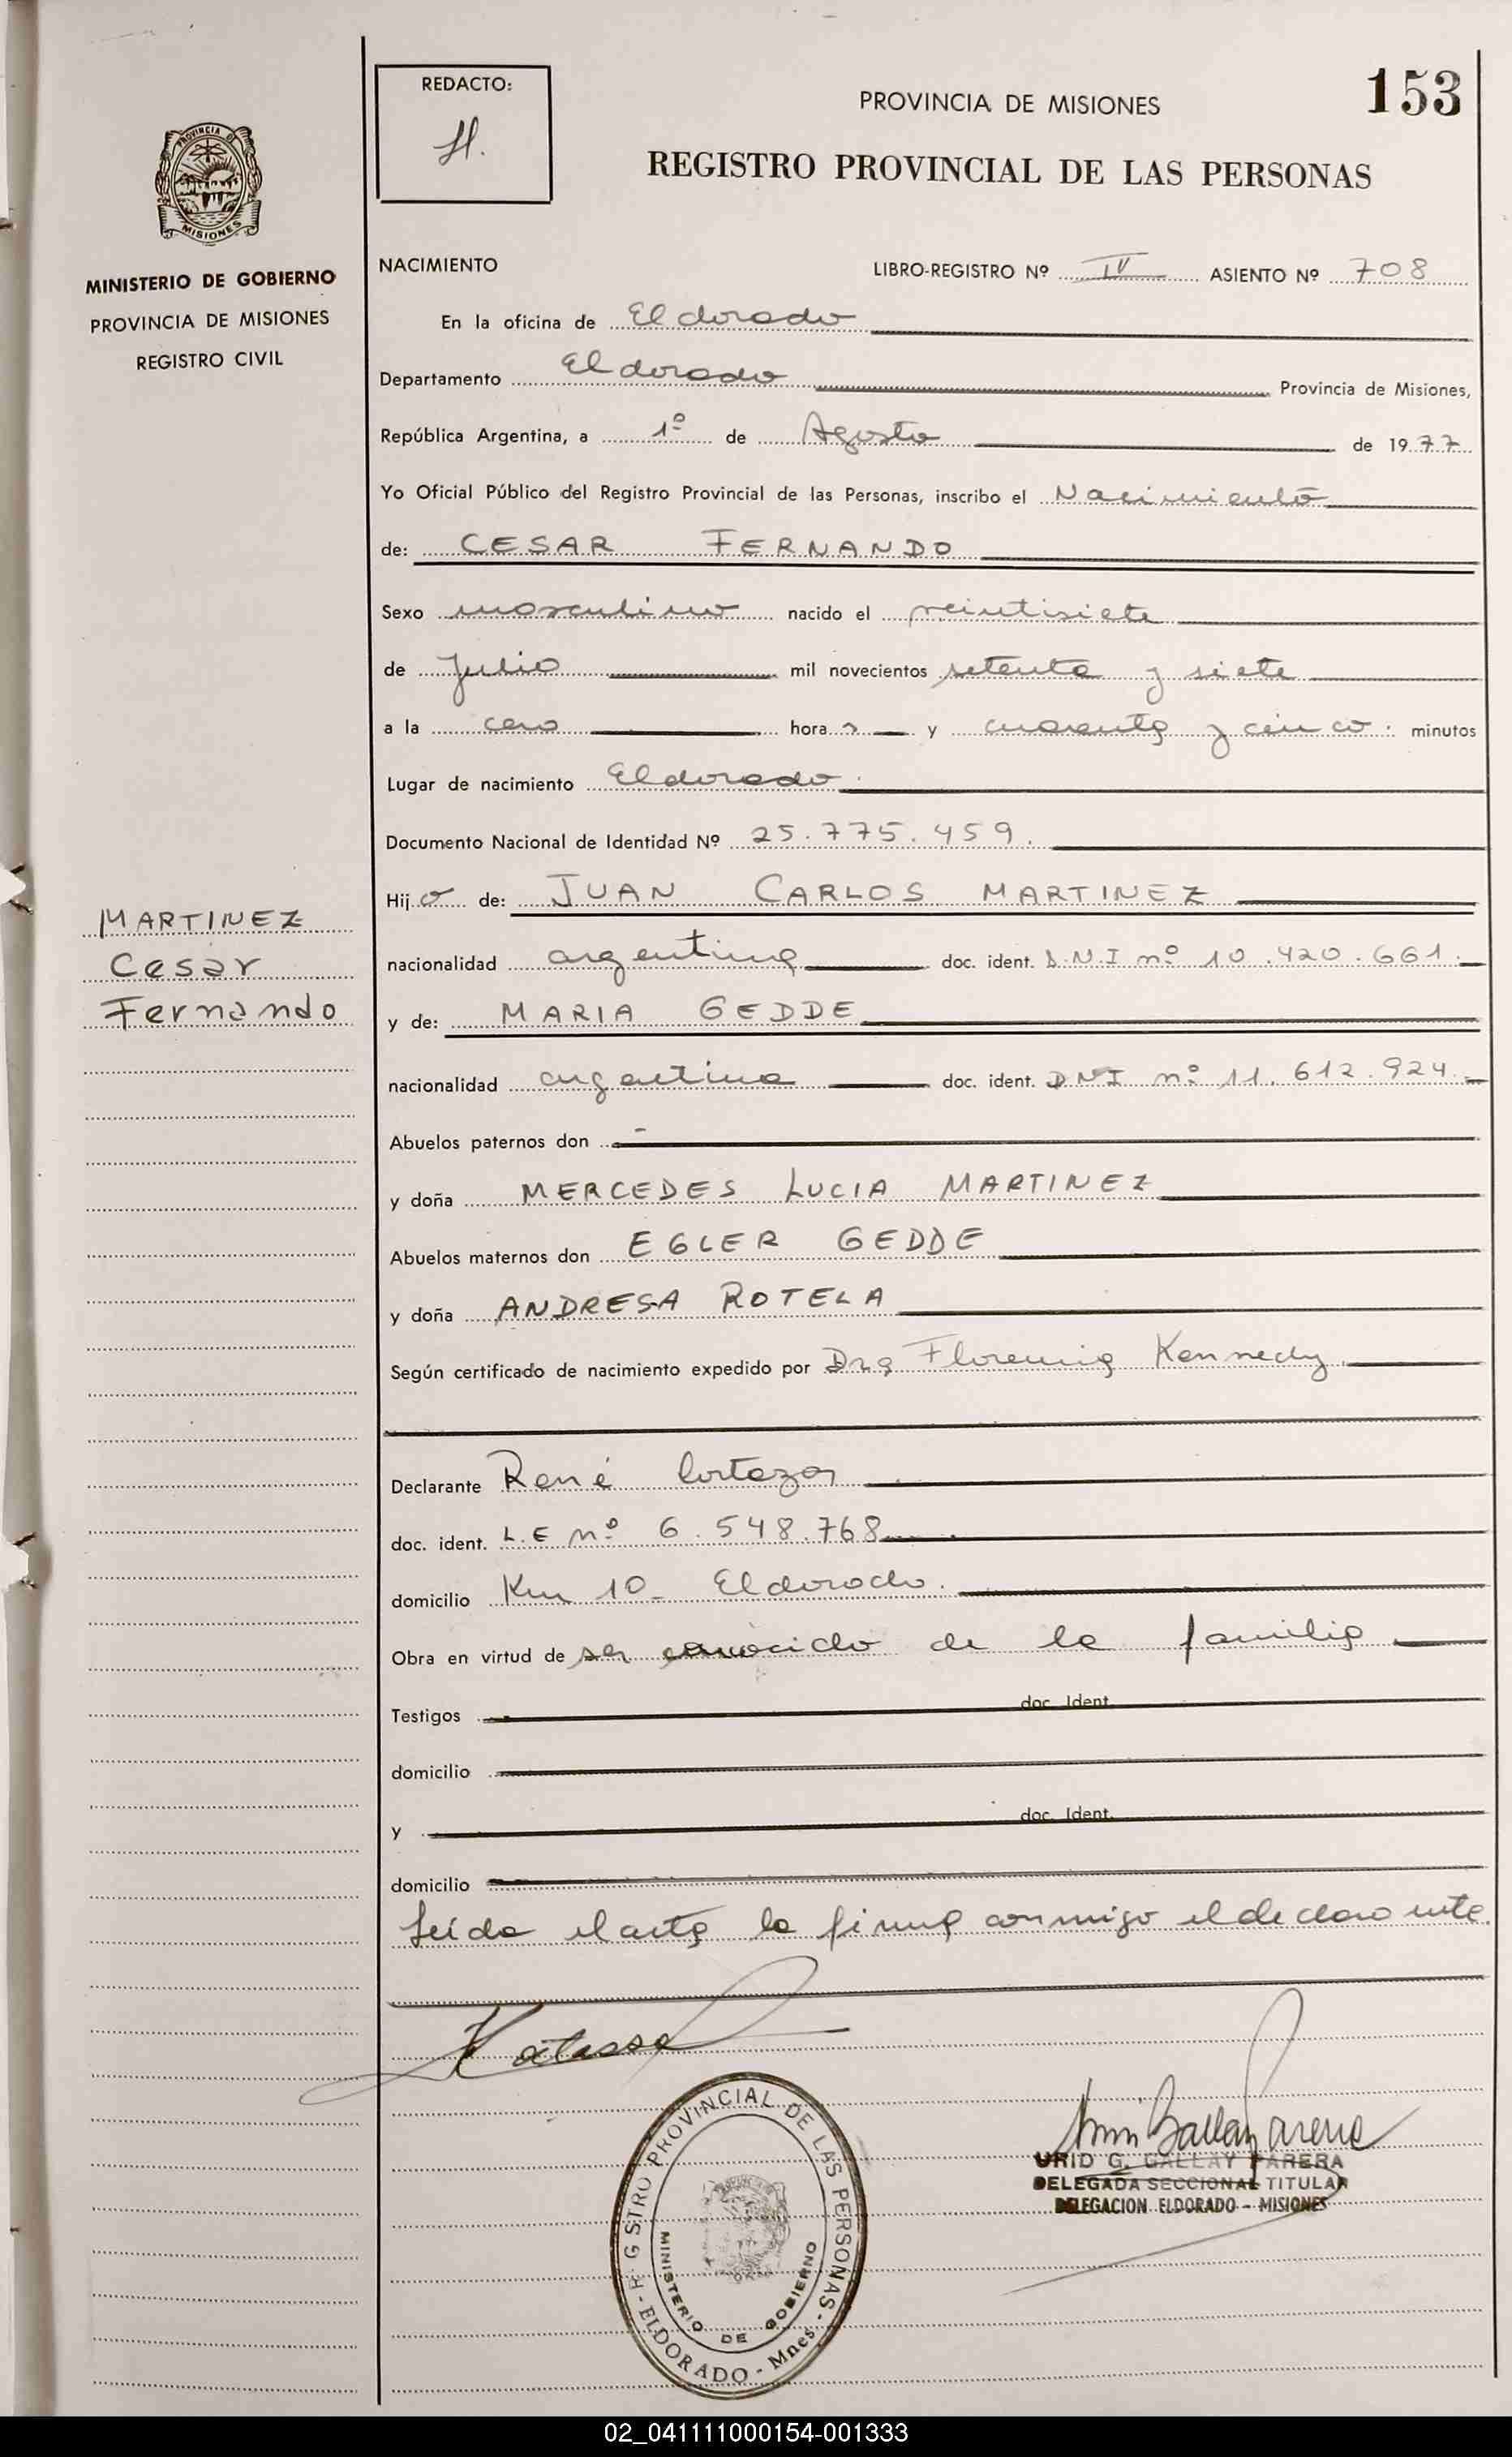 153
REDACTO:
H.
PROVINCIA DE MISIONES
REGISTRO PROVINCIAL DE LAS PERSONAS
PROVINCIA DE
MISIONES
MINISTERIO DE GOBIERNO
PROVINCIA DE MISIONES
REGISTRO CIVIL
NACIMIENTO LIBRO-REGISTRO Nº IV ASIENTO Nº 708
En la oficina de Eldorado
Departamento Eldorado Provincia de Misiones,
República Argentina, a 1º de Agosto de 1977
Yo Oficial Público del Registro Provincial de las Personas, inscribo el Nacimiento
de: CESAR FERNANDO
Sexo masculino nacido el veintisiete
de Julio mil novecientos setenta y siete
a la cero hora s y cuarenta y cinco. minutos
Lugar de nacimiento Eldorado.
Documento Nacional de Identidad Nº 25.775.459.
Hijo de: JUAN CARLOS MARTINEZ
MARTINEZ
Cesar
Fernando
nacionalidad argentina doc. ident. D.N.I nº 10.420.661.
y de: MARIA GEDDE
nacionalidad argentina doc. ident. DNI nº 11.612.924.
Abuelos paternos don
y doña MERCEDES LUCIA MARTINEZ
Abuelos maternos don EGLER GEDDE
y doña ANDRESA ROTELA
Según certificado de nacimiento expedido por Dra Florencia Kennedy
Declarante René Cortazar
doc. ident. L.E nº 6.548.768
domicilio Km 10_ Eldorado.
Obra en virtud de ser conocido de la familia
Testigos doc. Ident.
domicilio
y doc. Ident.
domicilio
Leída el acta la firma conmigo el declarante.
URID G. GALLAY PARERA
DELEGADA SECCIONAL TITULAR
DELEGACION ELDORADO - MISIONES
R. G STRO PROVINCIAL DE LAS PERSONAS - ELDORADO - Mnes.
MINISTERIO DE GOBIERNO
02_041111000154-001333